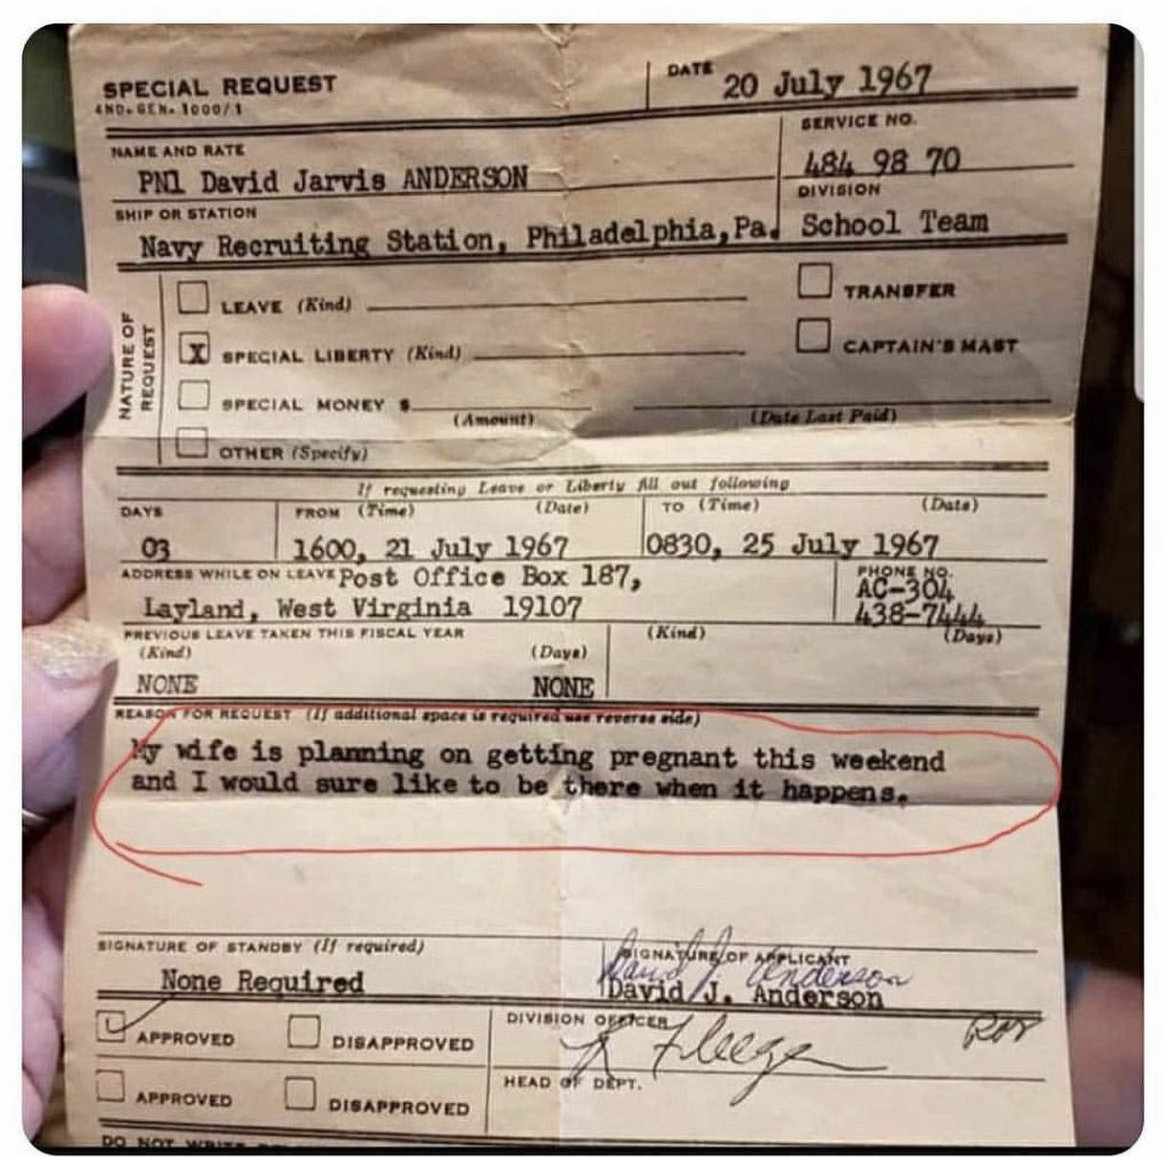 SPECIAL REQUEST
4ND-GEN-1000/1
DATE 20 July 1967
NAME AND RATE
PN1 David Jarvis ANDERSON
SERVICE NO.
484 98 70
SHIP OR STATION
Navy Recruiting Station, Philadelphia,Pa.
DIVISION
School Team
NATURE OF
REQUEST
LEAVE (Kind)
X SPECIAL LIBERTY (Kind)
SPECIAL MONEY $
(Amount)
(Date Last Paid)
OTHER (Specify)
TRANSFER
CAPTAIN'S MAST
If requesting Leave or Liberty fill out following
DAYS
03
FROM (Time) (Date)
1600, 21 July 1967
TO (Time) (Date)
0830, 25 July 1967
ADDRESS WHILE ON LEAVE Post Office Box 187,
Layland, West Virginia 19107
PHONE NO.
AC-304
438-7444
PREVIOUS LEAVE TAKEN THIS FISCAL YEAR
(Kind) (Days)
NONE NONE
(Kind) (Days)
REASON FOR REQUEST (If additional space is required use reverse side)
My wife is planning on getting pregnant this weekend
and I would sure like to be there when it happens.
SIGNATURE OF STANDBY (If required)
None Required
SIGNATURE OF APPLICANT
David J. Anderson
David J. Anderson
APPROVED DISAPPROVED
DIVISION OFFICER
APPROVED DISAPPROVED
HEAD OF DEPT.
DO NOT WRITE